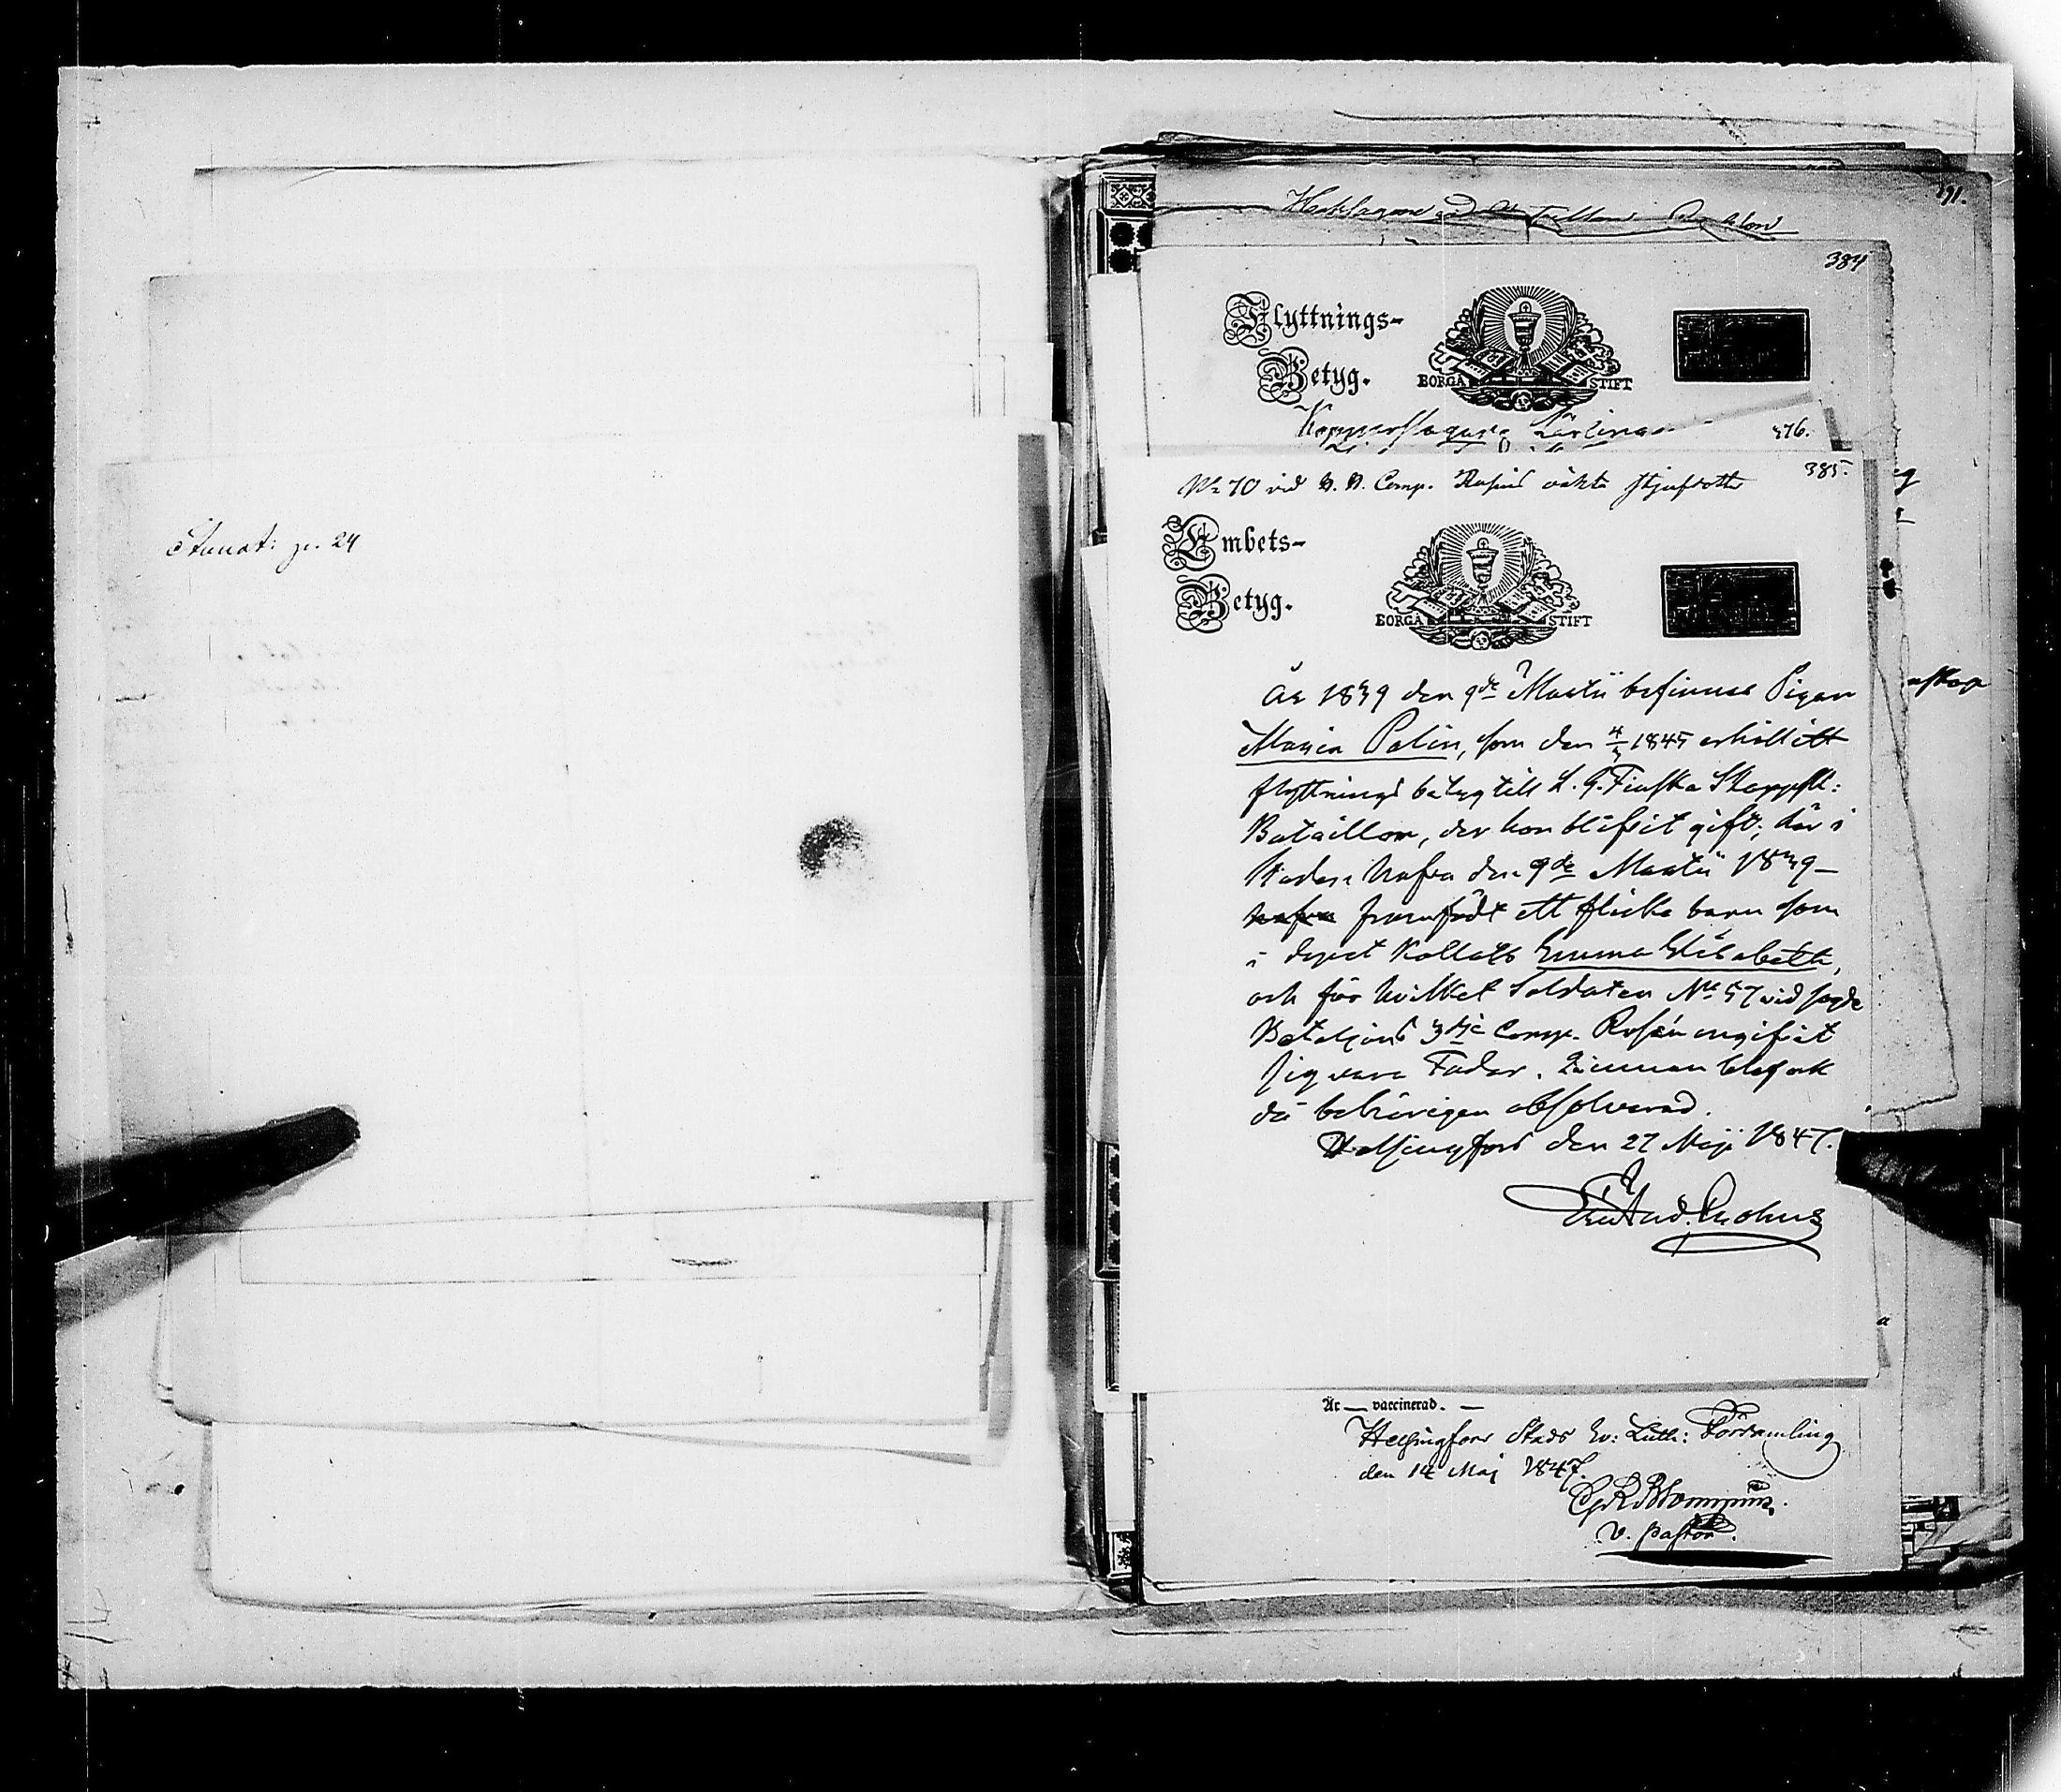 Stunat: p. 24
91.
384
Flyttnings-
Betyg.
BORGÅ STIFT
Kopparslagare
376.
385.
No 70 vid Comp. äkta
Embets-
Betyg.
BORGÅ STIFT
År 1839 den 9de Martii befinnes Pigan
Maria Palin, som den 4/3 1845 erhållitt
flyttnings betyg till L. G. Finska Skarpsk:
Bataillon, der hon blifvit gift, här i
Staden hafva den 9de Martii 1839 –
hafva framfödt ett flicke barn som
i dopet Kallats Emma Elisabeth,
och för hvilket Soldaten No 57 vid sagde
Bataljons 3dje Comp. Rosén angifvit
sig vara Fader. Qvinnan blef ock
då behörigen absolverad.
Helsingfors den 27 Maji 1847.
Är — vaccinerad. —
Helsingfors Stads Ev: Luth: Församling
den 14 Maj 1847.
v. pastor.